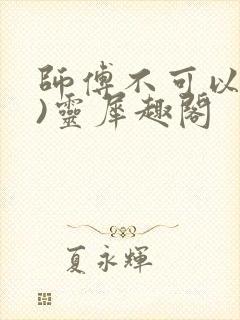 師傅不可以
)靈犀趣閣
夏永輝